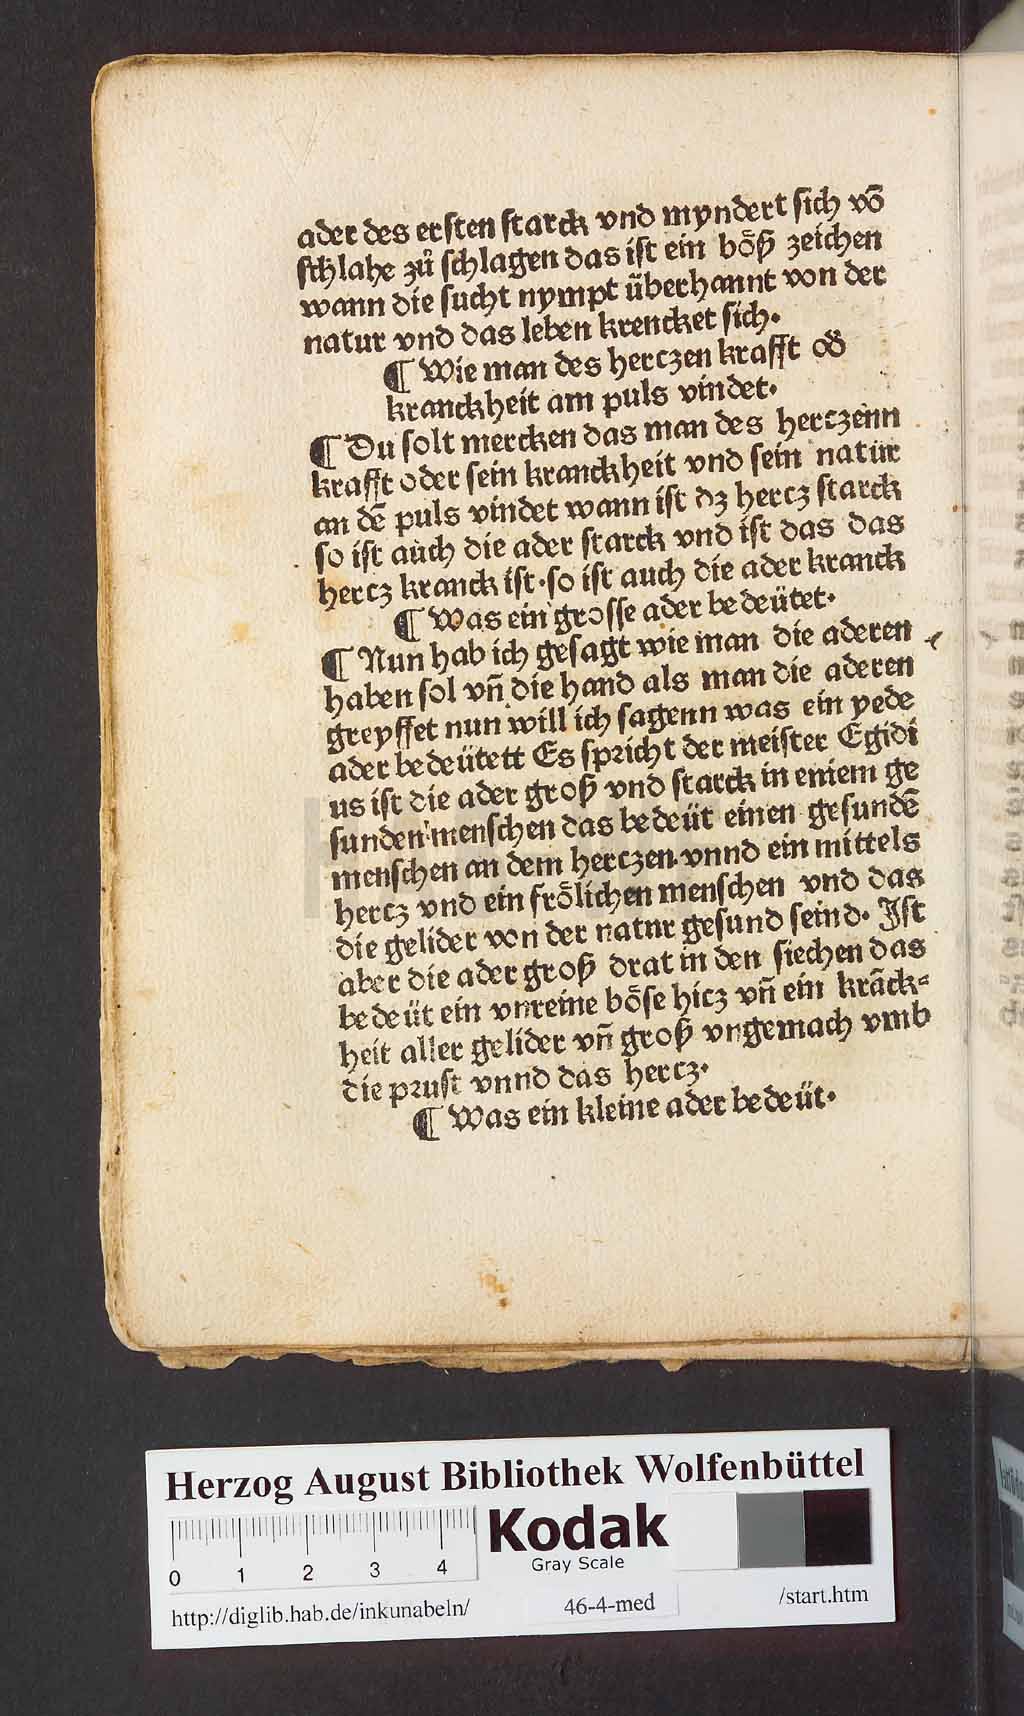 ader des ersten starck vnd myndert sich võ
schlahe zů schlagen das ist ein böß zeichen
wann die sucht nympt überhannt von der
natur vnd das leben krencket sich.
¶ Wie man des herczen krafft od̃
kranckheit am puls vindet.
¶ Du solt mercken das man des herczenn
krafft oder sein kranckheit vnd sein natur
an dẽ puls vindet wann ist dz hercz starck
so ist auch die ader starck vnd ist das das
hercz kranck ist. so ist auch die ader kranck
¶ Was ein grosse ader bedeütet.
¶ Nun hab ich gesagt wie man die aderen
haben sol vñ die hand als man die aderen
greyffet nun will ich sagenn was ein yede
ader bedeütett Es spricht der meister Egidi
us ist die ader groß vnd starck in eniem ge
sunden menschen das bedeüt einen gesundẽ
menschen an dem herczen. vnnd ein mittels
hercz vnd ein frölichen menschen vnd das
die gelider von der natnr gesund seind. Ist
aber die ader groß drat in den siechen das
bedeüt ein vnreine böse hicz vñ ein krãck⸗
heit aller gelider vñ groß vngemach vmb
die prust vnnd das hercz.
¶ Was ein kleine ader bedeüt.
Herzog August Bibliothek Wolfenbüttel
0 1 2 3 4
Kodak
Gray Scale
http://diglib.hab.de/inkunabeln/ 46-4-med /start.htm